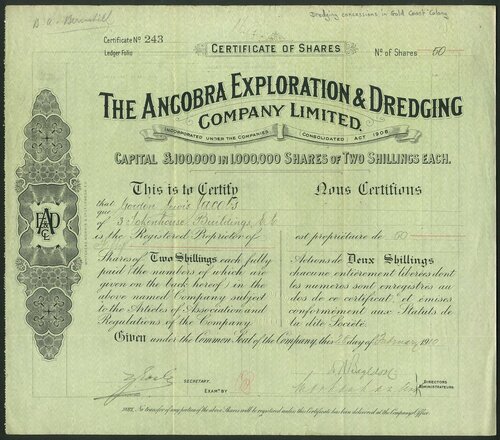 Dredging concessions in Gold Coast Colony
Certificate No 243
Ledger Folio
CERTIFICATE OF SHARES
No of Shares 50
THE ANCOBRA EXPLORATION & DREDGING
COMPANY LIMITED.
INCORPORATED UNDER THE COMPANIES (CONSOLIDATED) ACT 1908
CAPITAL £100,000 IN 1,000,000 SHARES OF TWO SHILLINGS EACH.
This is to Certify
Nous Certifions
that Gordon Jacobs
que
of 3 Tokenhouse Buildings, E.C.
is the Registered Proprietor of
est propriétaire de 50
Shares of Two Shillings each fully
Actions de Deux Shillings
paid (the numbers of which are
chacune entièrement libérées dont
given on the back hereof) in the
les numéros sont enregistrés au
above named Company subject
dos de ce certificat, et émises
to the Articles of Association and
conformément aux Statuts de
Regulations of the Company.
la dite Société.
Given under the Common Seal of the Company, this day of February 1910
SECRETARY.
EXAMD BY
DIRECTORS
ADMINISTRATEURS
NOTE. No transfer of any portion of the above Shares will be registered unless this Certificate has been delivered at the Company's Office.